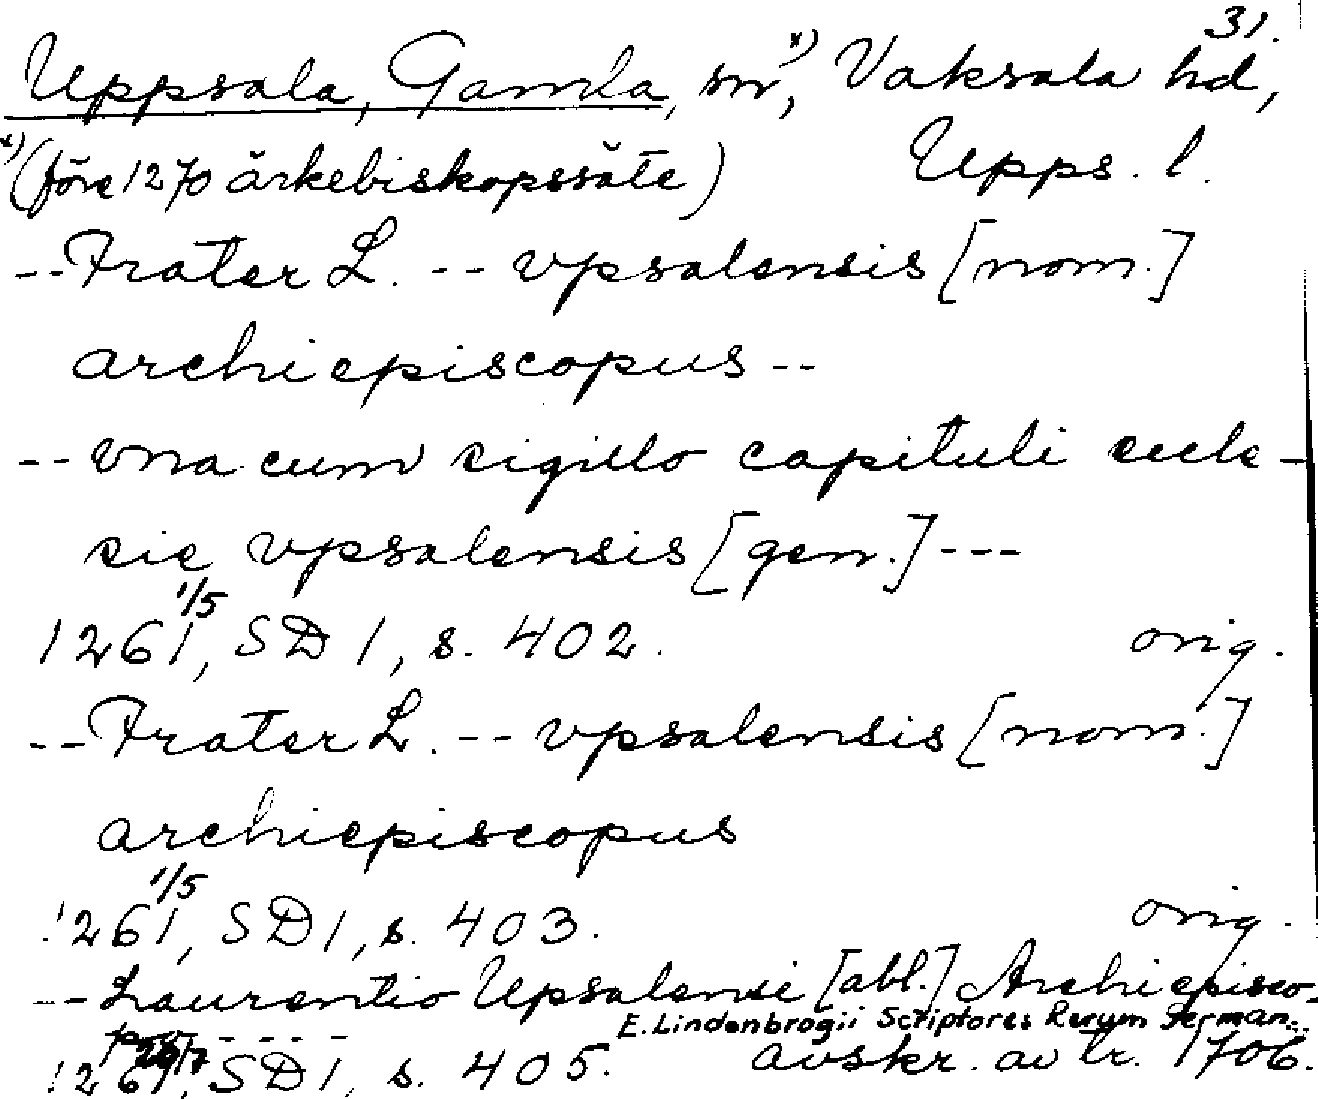 31.
Uppsala, Gamla, sn, x) Vaksala hd,
x) (före 1270 ärkebiskopssäte) Upps. l.
-- Frater L. -- vpsalensis [nom.]
archiepiscopus --
-- vna cum sigillo capituli eccle-
sie vpsalensis [gen.] ---
1261 1/5, SD 1, s. 402. orig.
-- Frater L. -- vpsalensis [nom.]
archiepiscopus
1261 1/5, SD 1, s. 403. orig.
-- Laurentio Upsalensi [abl.] Archiepisco-
po ---- E. Lindenbrogii Scriptores Rerum German..
1261, SD 1, s. 405. avskr. av tr. 1706.